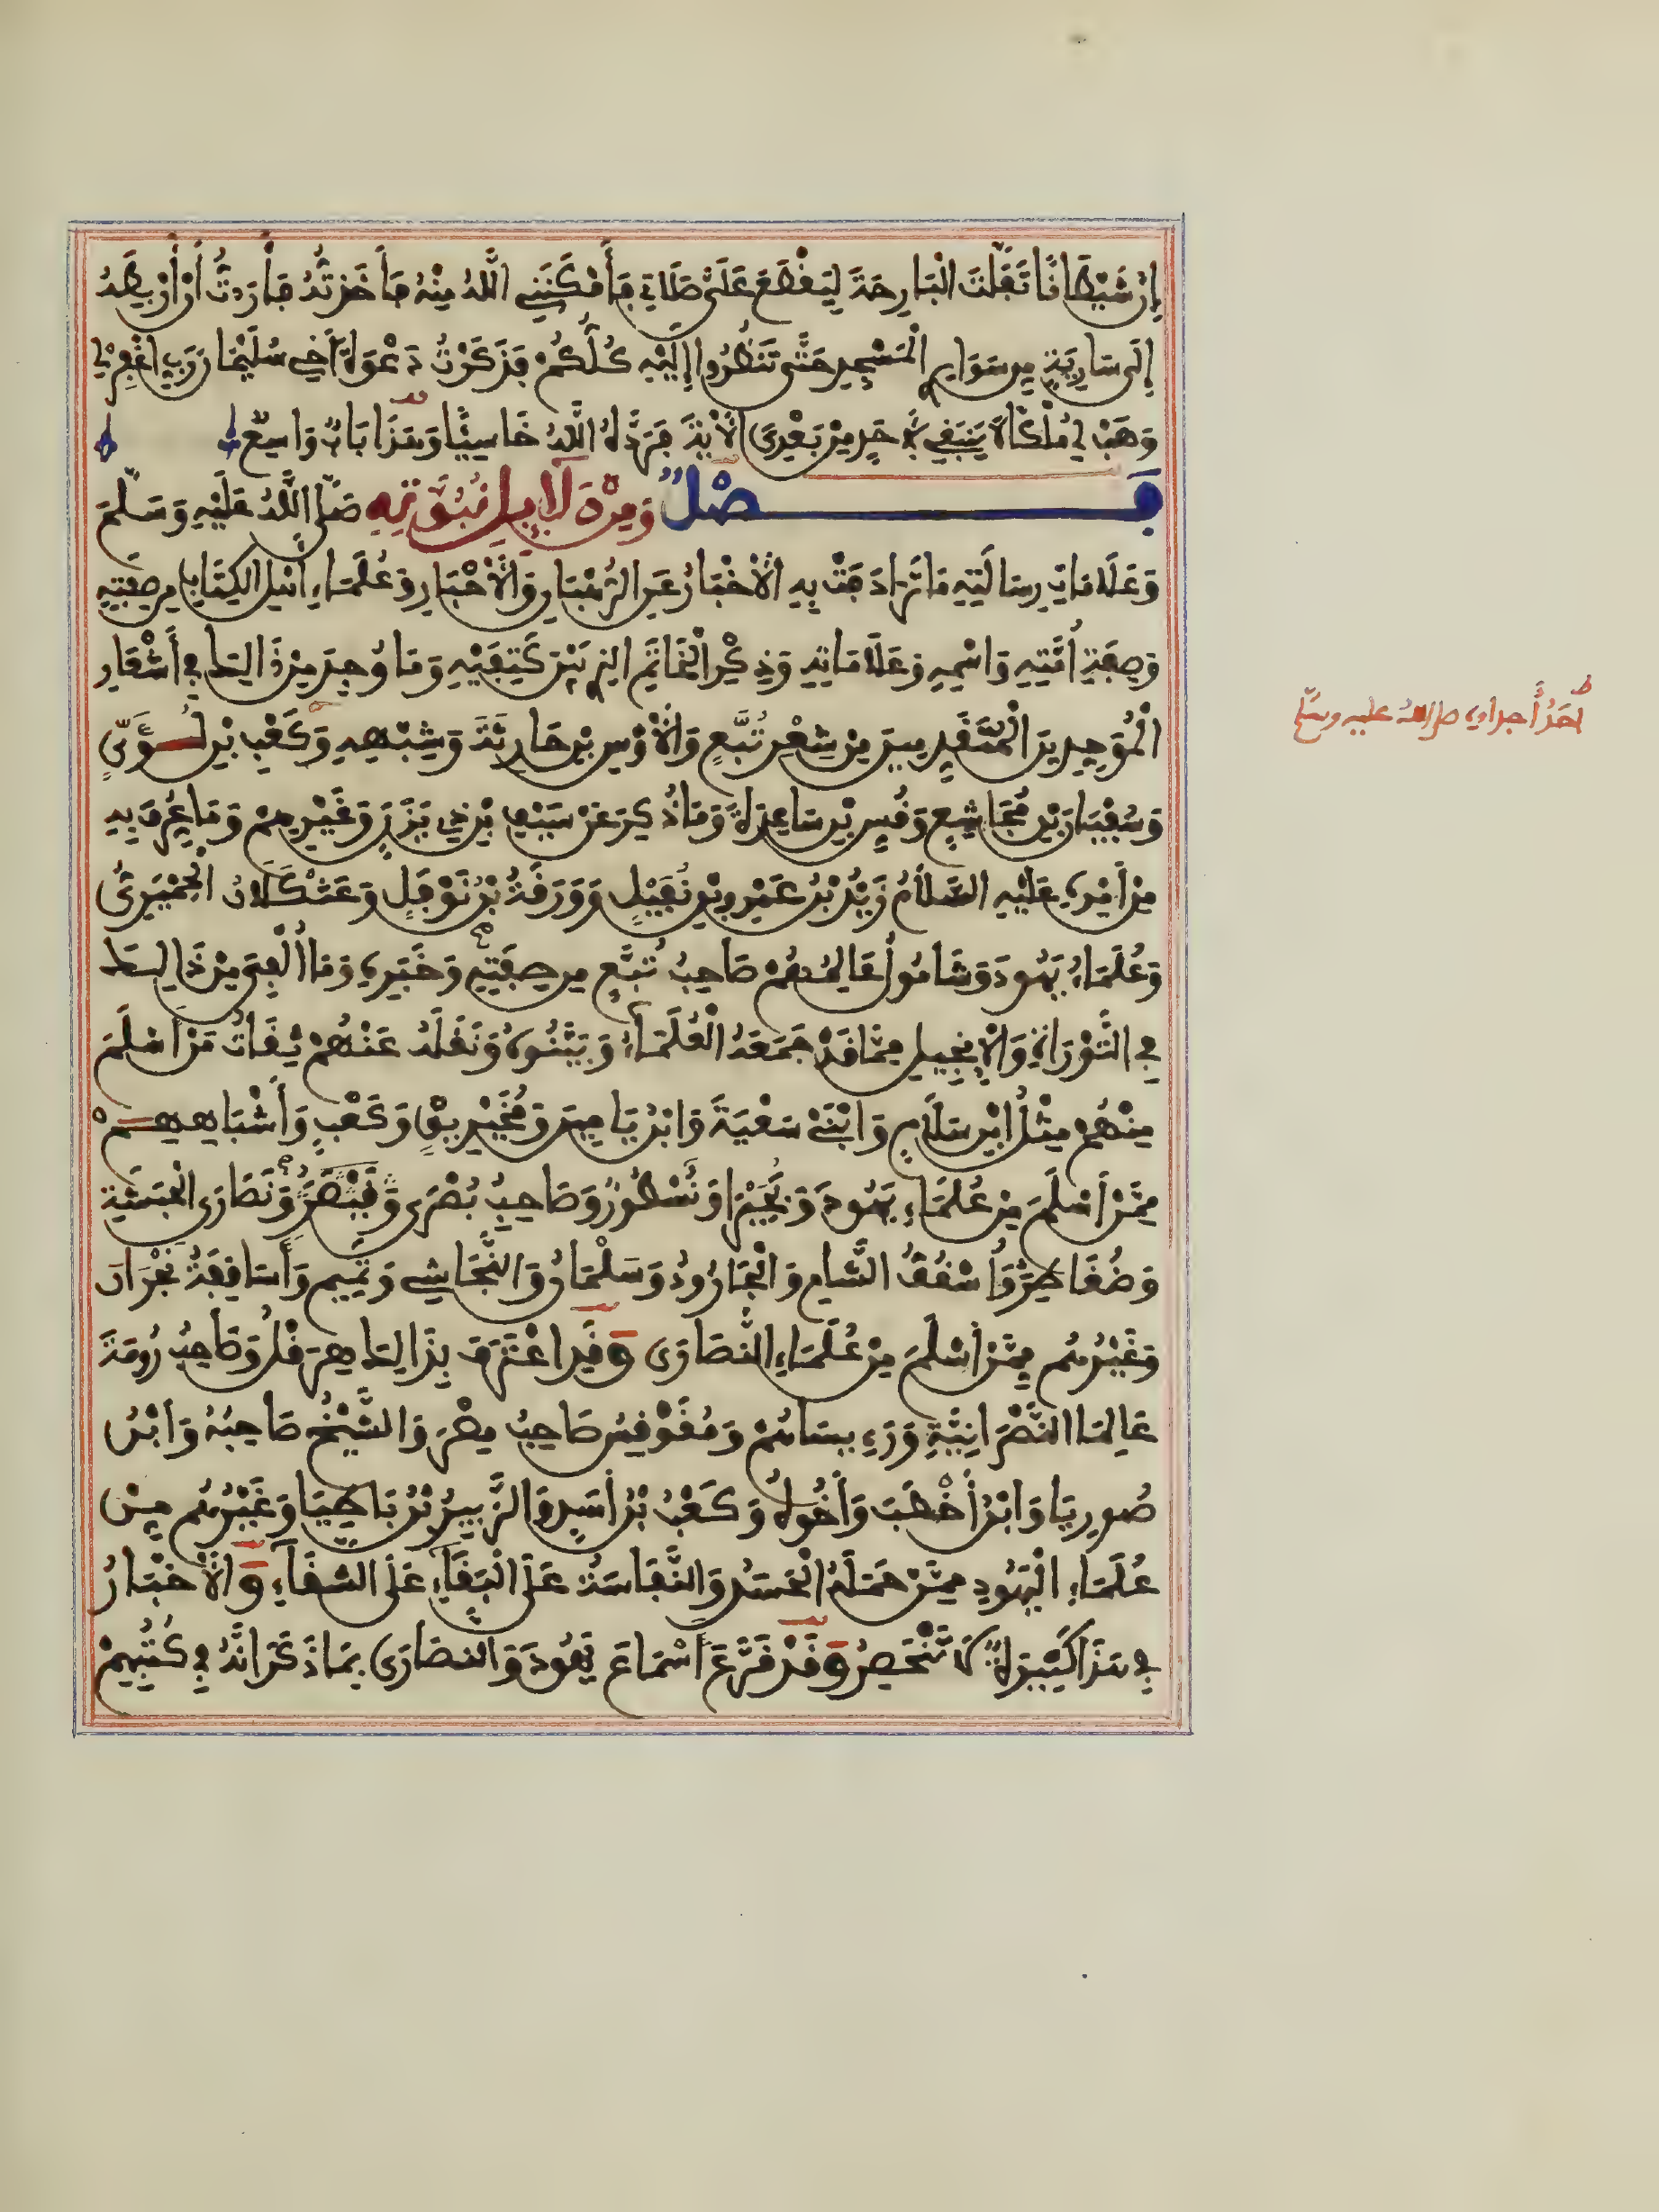 إِنَّ شَيْطَانًا تَفَلَّتَ الْبَارِحَةَ لِيَقْطَعَ عَلَيَّ صَلَاتِي فَأَمْكَنَنِي اللَّهُ مِنْهُ فَأَخَذْتُهُ فَأَرَدتُّ أَنْ أَرْبِطَهُ
إِلَى سَارِيَةٍ مِن سَوَارِي الْمَسْجِدِ حَتَّى تَنظُرُوا إِلَيْهِ كُلُّكُمْ فَذَكَرْتُ دَعْوَةَ أَخِي سُلَيْمَانَ رَبِّ اغْفِرْ لِي
وَهَبْ لِي مُلْكًا لَّا يَنبَغِي لِأَحَدٍ مِّنْ بَعْدِيَ الْآيَةَ فَرَدَّهُ اللَّهُ خَاسِئًا وَهَذَا بَابٌ وَاسِعٌ
فَصْلٌ وَمِنْ دَلَائِلِ نُبُوَّتِهِ صَلَّى اللَّهُ عَلَيْهِ وَسَلَّمَ
وَعَلَامَاتِ رِسَالَتِهِ مَا تَرَادَفَتْ بِهِ الْأَخْبَارُ عَنِ الرُّهْبَانِ وَالْأَحْبَارِ وَعُلَمَاءِ أَهْلِ الْكِتَابِ مِن صِفَتِهِ
وَصِفَةِ أُمَّتِهِ وَاسْمِهِ وَعَلَامَاتِهِ وَذِكْرِ الْخَاتَمِ الذِي بَيْنَ كَتِفَيْهِ وَمَا وُجِدَ مِنْ ذَالِكَ فِي أَشْعَارِ
الْمُوَحِّدِينَ الْمُتَقَدِّمِينَ مِنْ شِعْرِ تُبَّعٍ وَالْأَوْسِ بْنِ حَارِثَةَ وَشِبْهِهِ وَكَعْبِ بْنِ لُؤَيٍّ
وَسُفْيَانَ بْنِ مُجَاشِعٍ وَقُسِّ بْنِ سَاعِدَةَ وَمَا ذُكِرَ عَنْ سَيْفِ بْنِ ذِي يَزَنٍ وَغَيْرِهِمْ وَمَا عَرَّفَ بِهِ
مِنْ أَمْرِهِ عَلَيْهِ السَّلَامُ زَيْدُ بْنُ عَمْرِو بْنِ نُفَيْلٍ وَوَرَقَةُ بْنُ نَوْفَلٍ وَعَثْكَلَانُ الْحِمْيَرِيُّ
وَعُلَمَاءُ يَهُودَ وَشَامُولُ عَالِمُهُمْ صَاحِبُ تُبَّعٍ مِن صِفَتِهِ وَخَبَرِهِ وَمَا أُلْفِيَ مِنْ ذَالِكَ
فِي التَّوْرَاةِ وَالْإِنْجِيلِ مِمَّا قَدْ جَمَعَهُ الْعُلَمَاءُ وَبَيَّنُوهُ وَنَقَلَهُ عَنْهُمْ ثِقَاتُ مَنْ أَسْلَمَ
مِنْهُمْ مِثْلُ ابْنِ سَلَامٍ وَابْنَيْ سَعْيَةَ وَابْنِ يَامِينَ وَمُخَيْرِيقٍ وَكَعْبٍ وَأَشْبَاهِهِمْ
مِمَّنْ أَسْلَمَ مِنْ عُلَمَاءِ يَهُودَ وَبَحِيْرَا وَنُسْطُورٌ وَصَاحِبُ بُصْرَى وَقَيْصَرُ وَنَصَارَى الْحَبَشَةِ
وَضُغَاطِرُ وَأُسْقُفُ الشَّامِ وَالْجَارُودُ وَسَلْمَانُ وَالنَّجَاشِي وَتَمِيمٌ وَأَسَاقِفَةُ نَجْرَانَ
وَغَيْرُهُم مِمَّنْ أَسْلَمَ مِنْ عُلَمَاءِ النَّصَارَى وَقَدِ اعْتَرَفَ بِذَالِكَ هِرَقْلُ وَصَاحِبُ رُومَةَ
عَالِمَا النَّصْرَانِيَّةِ وَرَءِيسَاهُمْ وَمُقَوْقِسُ صَاحِبُ مِصْرَ وَالشَّيْخُ صَاحِبُهُ وَابْنُ
صُورِيَا وَابْنُ أَخْطَبَ وَأَخُوهُ وَكَعْبُ بْنُ أَسَدٍ وَالزُّبَيْرُ بْنُ بَاطِيَا وَغَيْرُهُم مِنْ
عُلَمَاءِ الْيَهُودِ مِمَّنْ حَمَلَهُ الْحَسَدُ وَالنَّفَاسَةُ عَلَى الْبَقَاءِ عَلَى الشَّقَاءِ وَالْأَخْبَارُ
فِي هَذَا كَثِيرَةٌ لَا تَنْحَصِرُ وَقَدْ قَرَّعَ أَسْمَاعَ يَهُودَ وَالنَّصَارَى بِمَا ذَكَرَ أَنَّهُ فِي كُتُبِهِمْ
أَحَدُ أجداده صلى الله عليه وسلم